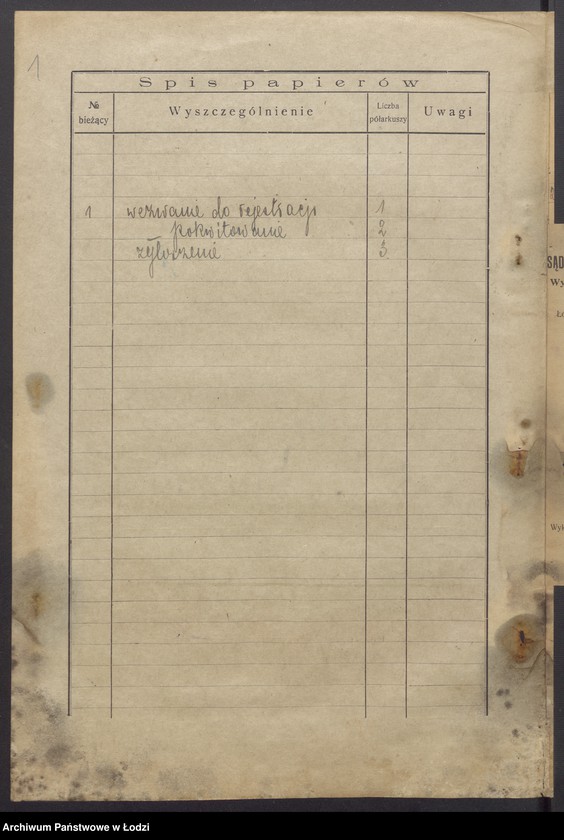 1
Spis papierów
№ bieżący
Wyszczególnienie
Liczba półarkuszy
Uwagi
1 wezwanie do rejestracji 1
pokwitowanie 2
zgłoszenie 3
SĄD
Wy
Archiwum Państwowe w Łodzi